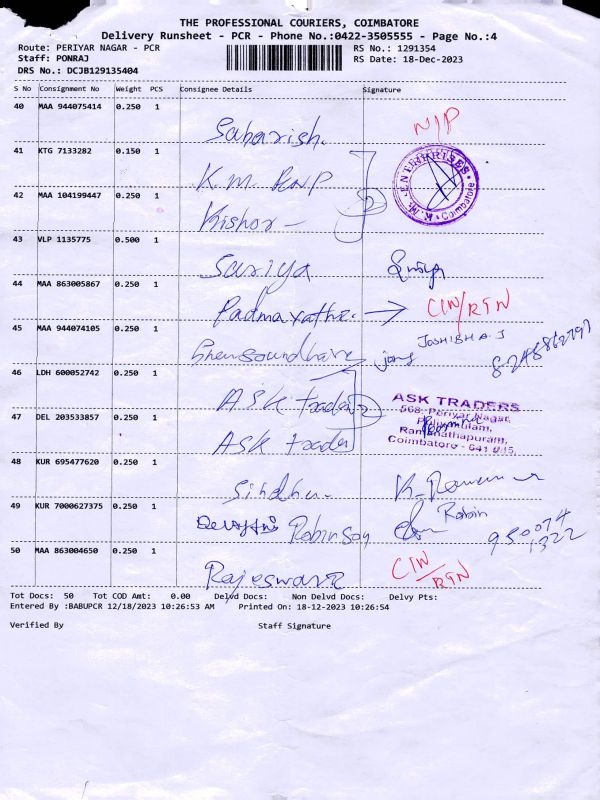 THE PROFESSIONAL COURIERS, COIMBATORE
Delivery Runsheet - PCR - Phone No.:0422-3505555 - Page No.:4
Route: PERIYAR NAGAR - PCR
RS No.: 1291354
Staff: PONRAJ
RS Date: 18-Dec-2023
DRS No.: DCJB129135404
S No Consignment No Weight PCS Consignee Details Signature
40 MAA 944075414 0.250 1
Sabarish. N/P
41 KTG 7133282 0.150 1
K.M. ENP
K.M. ENTERPRISES Coimbatore
42 MAA 104199447 0.250 1
Kishor - 2
43 VLP 1135775 0.500 1
Sariya
44 MAA 863005867 0.250 1
Padmavathi. → CIN/RTN
45 MAA 944074105 0.250 1
JOSHIBHA.J
46 LDH 600052742 0.250 1
ASK trader 2
ASK TRADERS
568, Periyar Nagar,
Pulivakulam,
Ramanathapuram,
Coimbatore - 641 045.
47 DEL 203533857 0.250 1
ASK trader
48 KUR 695477620 0.250 1
Sindhu.
49 KUR 7000627375 0.250 1
Robinson Robin
950074
1322
50 MAA 863004650 0.250 1
Rajeswari CIN/RTN
Tot Docs: 50 Tot COD Amt: 0.00 Delvd Docs: Non Delvd Docs: Delvy Pts:
Entered By :BABUPCR 12/18/2023 10:26:53 AM Printed On: 18-12-2023 10:26:54
Verified By Staff Signature